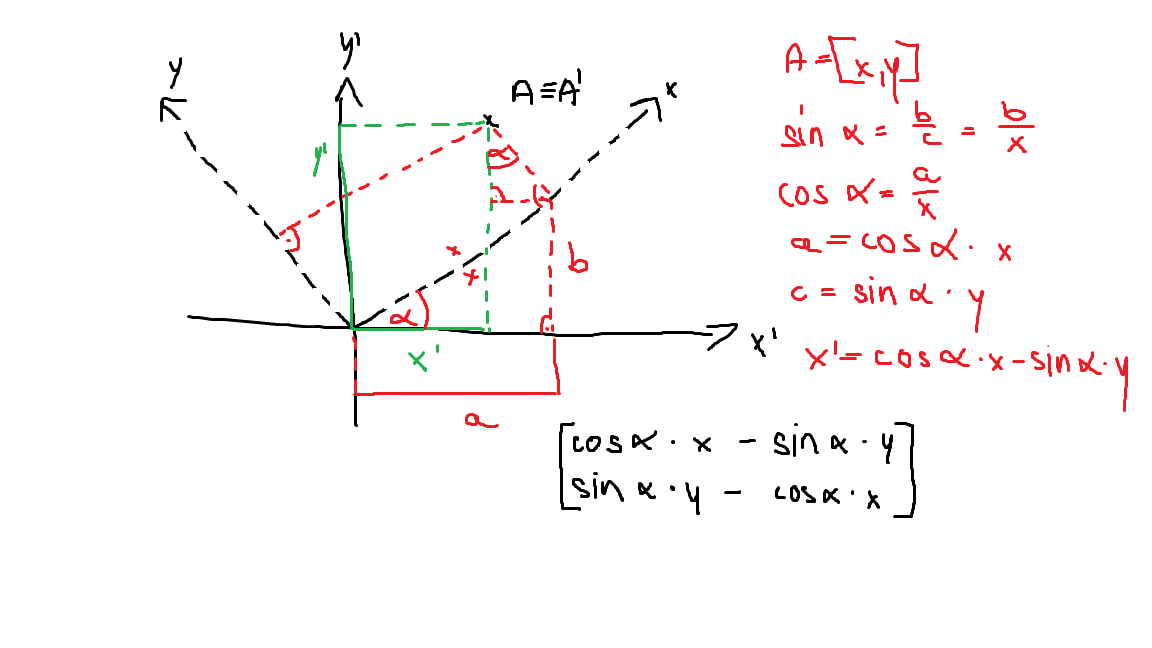 y'
y
A≡A'
x
y'
α
x
x
b
α
x'
x'
a
A = [x,y]
sin α = b/c = b/x
cos α = a/x
a = cos α · x
c = sin α · y
x' = cos α · x - sin α · y
[cos α · x - sin α · y
sin α · y - cos α · x]